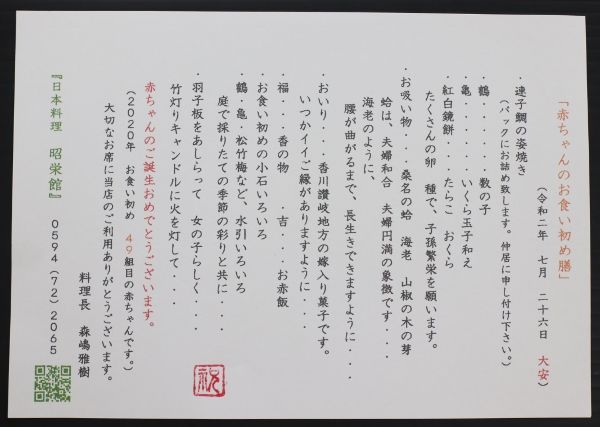 「赤ちゃんのお食い初め膳」
(令和二年 七月 二十六日 大安)
・連子鯛の姿焼き
(パックにお詰め致します。仲居に申し付け下さい。)
・鶴・・・・・・数の子
・亀・・・・・・いくら玉子和え
・紅白鏡餅・・・たらこ おくら
たくさんの卵 種で、子孫繁栄を願います。
・お吸い物・・・桑名の蛤 海老 山椒の木の芽
蛤は、夫婦和合 夫婦円満の象徴です・・・
海老のように、
腰が曲がるまで、長生きできますように・・・
・おいり・・・香川讃岐地方の嫁入り菓子です。
いつかイイご縁がありますように・・・
・福・・・香の物 ・吉・・・お赤飯
・お食い初めの小石いろいろ
・鶴・亀・松竹梅など、水引いろいろ
庭で採りたての季節の彩りと共に・・・
・羽子板をあしらって 女の子らしく・・・
竹灯りキャンドルに火を灯して・・・
赤ちゃんのご誕生おめでとうございます。
(2020年 お食い初め 49組目の赤ちゃんです。)
大切なお席に当店のご利用ありがとうございます。
料理長 森嶋雅樹
『日本料理 昭栄館』 0594(72)2065
祝